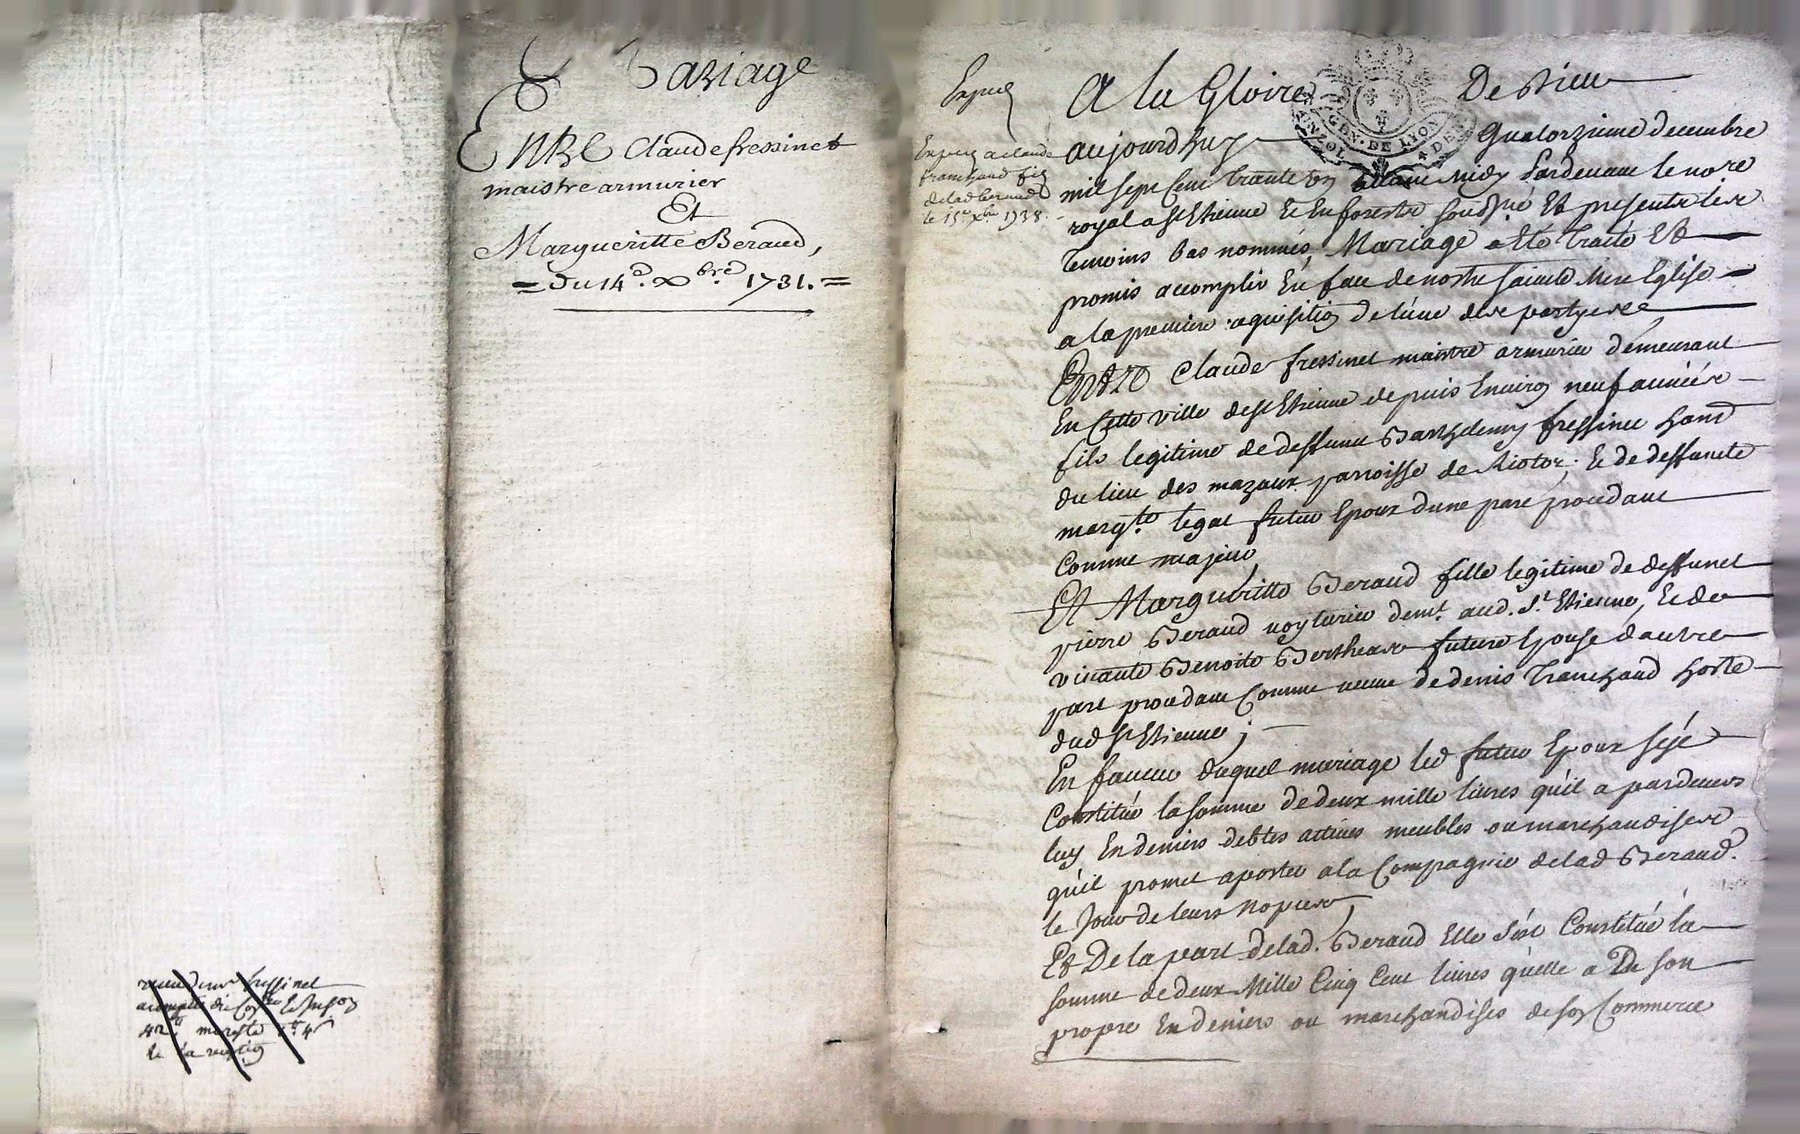 Mariage
Entre Claude fressinet
maistre armurier
Et
Margueritte Beraud,
= Du 14e. Xbre. 1731. =
fressinet
le
Expué
Expué a claude
franchaud fils
delad beraud
le 15e xbre 1738.
A la Gloire De Dieu
aujourdhuy quatorzieme decembre
mil sept Cent trante un avant midy Pardevant le nore
royal a St Etienne Et En forestz soubsné Et presents les
temoins bas nommés, Mariage a Eté traité Et
promis accomplir En face de nostre sainte Mere Eglise
a la premiere aquisition de l'une des partyes
Entre Claude fressinet maistre armurier demeurant
En Cette ville de St Etienne depuis Environ neuf années
fils legitime de deffunt Barthelemy fressinet
du lieu des mazaux parroisse de Riotor, Et de deffuncte
margte. legat futur Epoux dune part procedant
Comme majeur,
Et Margueritte Beraud fille legitime de deffunct
pierre Beraud voyturier demt. aud. St Etienne, Et de
vivante Benoite Berthear future Epouse dautre
part procedant Comme veuve de denis Franchaud hoste
dud St Etienne;
En faveur duquel mariage led futur Epoux sest
Constitué la somme de deux mille livres qu'il a pardevers
luy En deniers debtes actives meubles ou marchandises
qu'il promet aporter a la Compagnie delad Beraud.
le Jour de leurs Nopces,
Et De la part delad. Beraud Elle s'est Constitué la
somme de deux Mille Cinq Cent livres qu'elle a Du son
propre En deniers ou marchandises de son Commerce